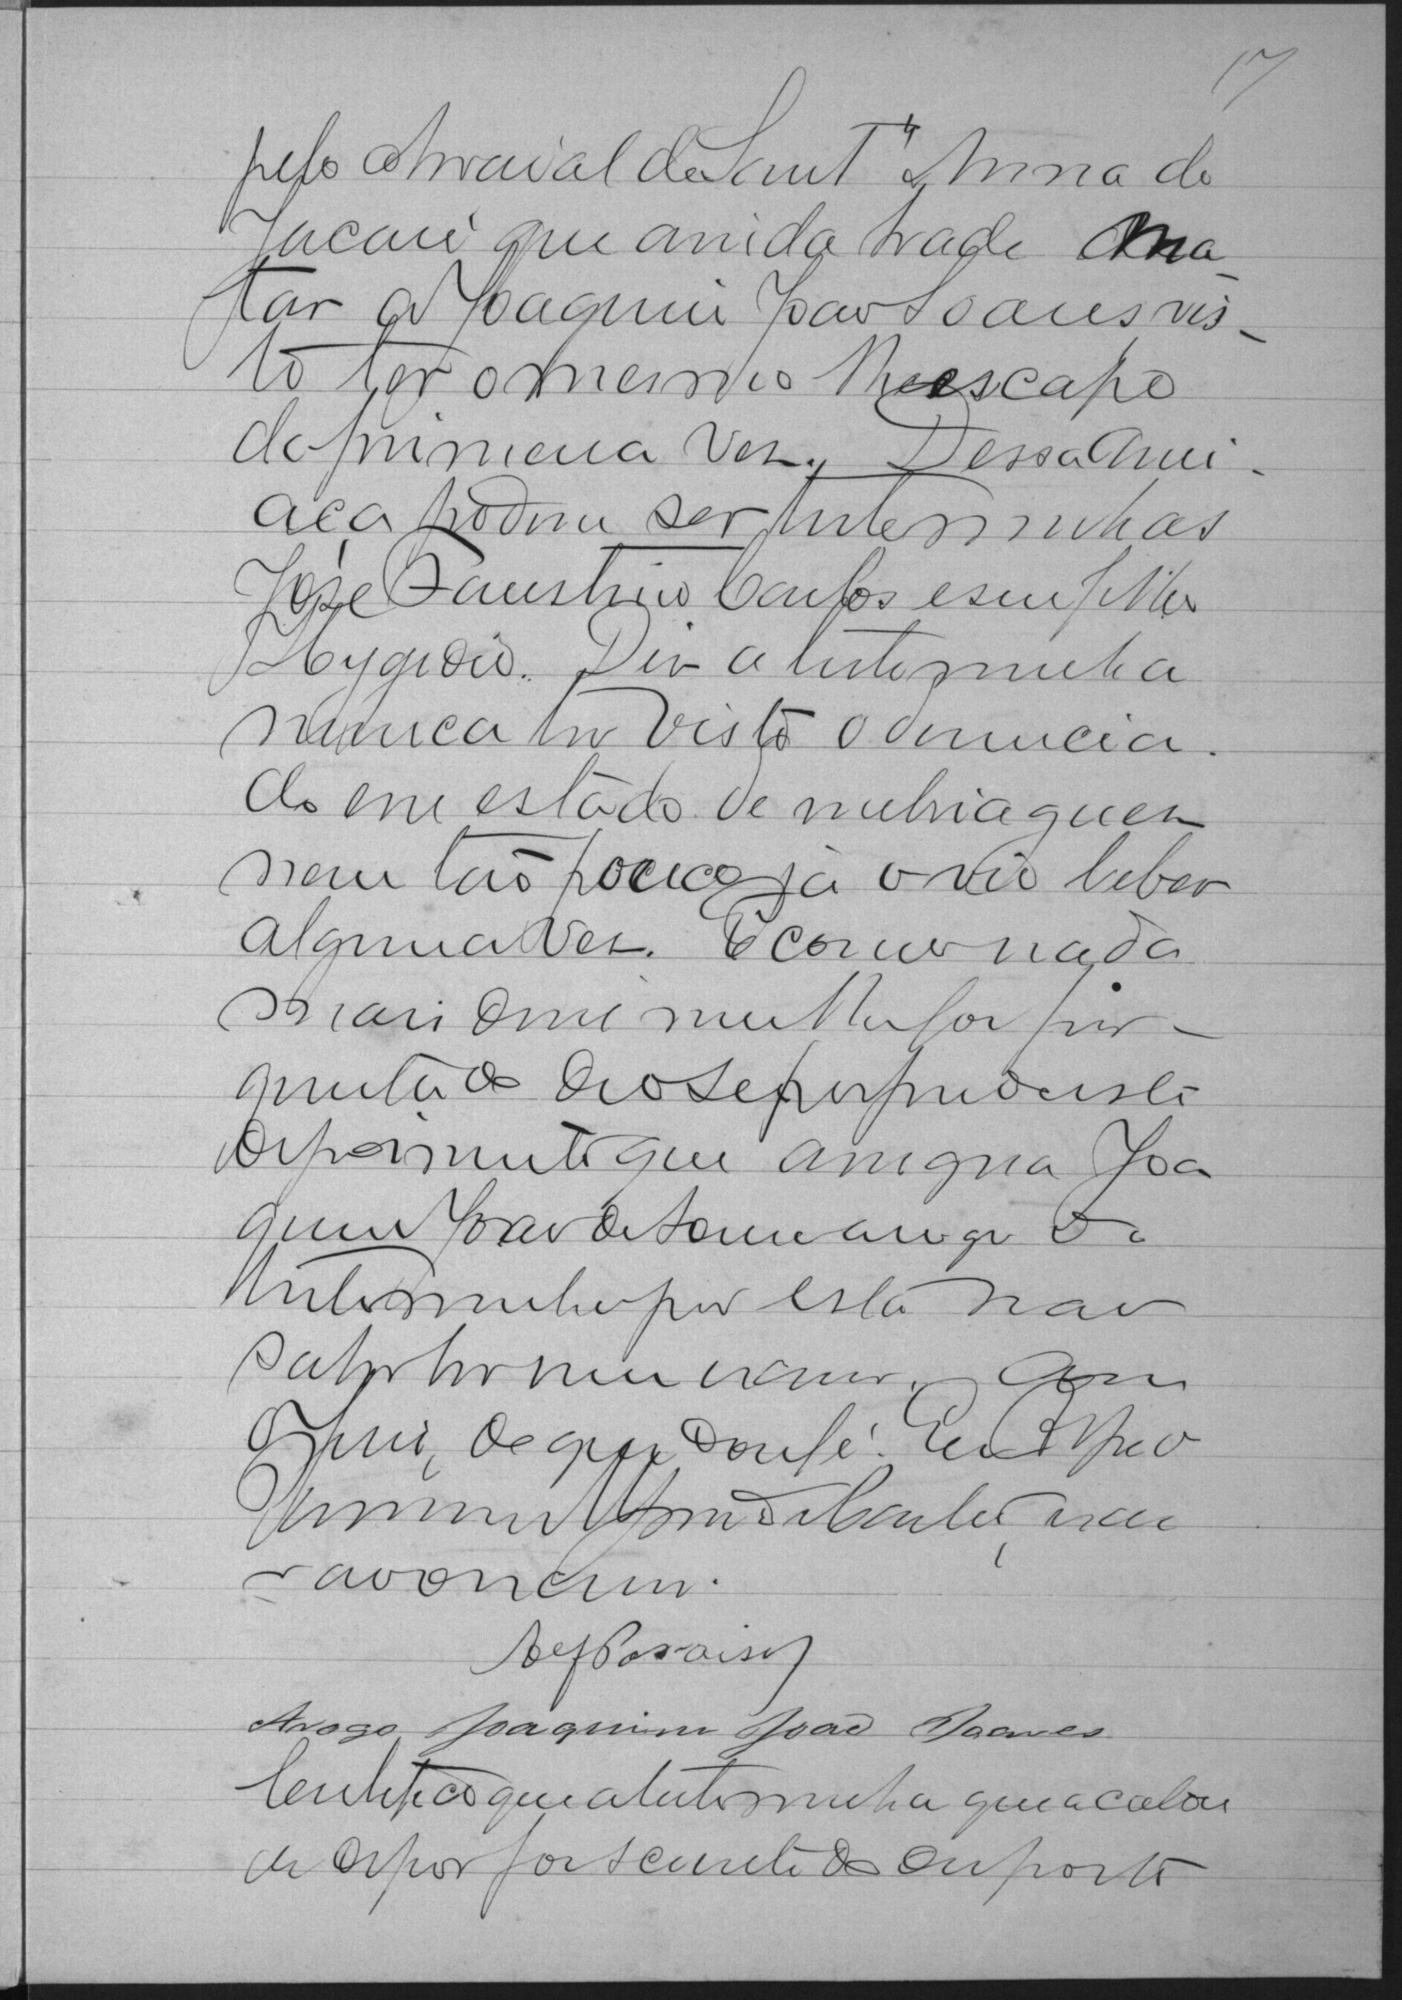 17
pelo Arraial de Sant'Anna de
Jacaré que ainda hade ma-
tar a Joaquim João Soares, vis-
to ter o mesmo lhe escapo
da primeira vez. Dessa ame-
aça podem ser testemunhas
José Faustino Carlos e seu filho
Hygidio. Diz a testemunha
nunca ter visto o denuncia-
do em estado de embriaguez
nem tão pouco já o vio beber
alguma vez. E como nada
mais disse nem lhe foi per-
guntado deo-se por findo este
depoimento que assigna Joa
quim João de Soares a rogo da
testemunha por esta não
saber ler nem escrever, com
o Juiz, de que dou fé. Eu
escri
vão o escrevi.
Arogo Joaquim João Soares
Certifico que a testemunha que acabou
de depor foi scientificado em porte